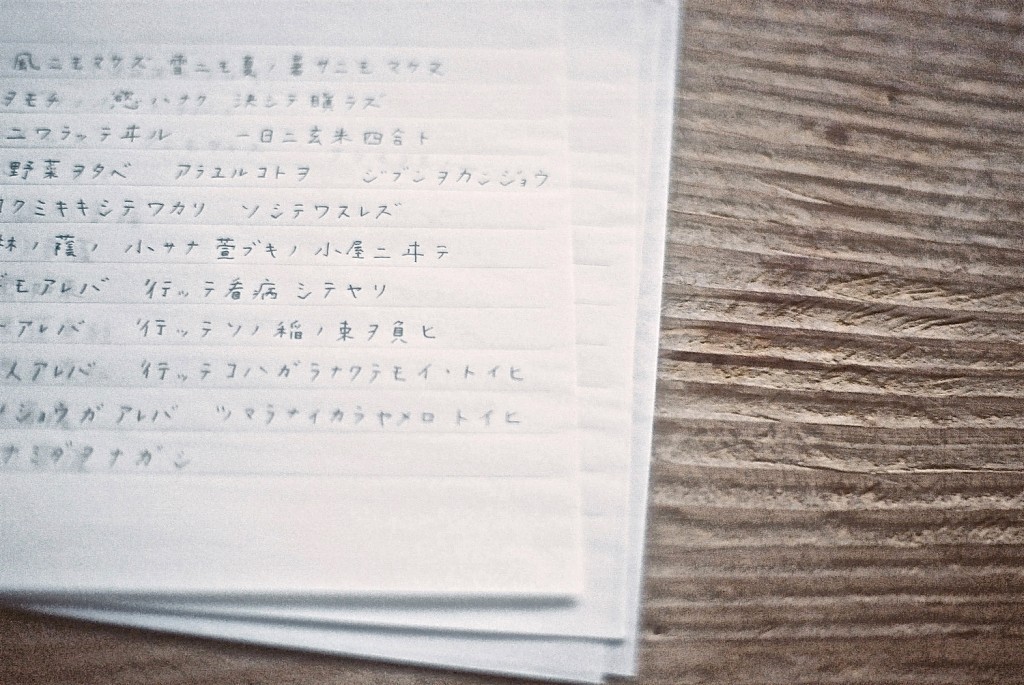 風ニモマケズ 雪ニモ夏ノ暑サニモマケヌ
ヲモチ ノ 慾ハナク 決シテ瞋ラズ
ニワラッテヰル 一日ニ玄米四合ト
野菜ヲタベ アラユルコトヲ ジブンヲカンジョウ
ヨクミキキシテワカリ ソシテワスレズ
林ノ蔭ノ 小サナ萱ブキノ小屋ニヰテ
モアレバ 行ッテ看病シテヤリ
アレバ 行ッテソノ稲ノ束ヲ負ヒ
人アレバ 行ッテコハガラナクテモイヽトイヒ
ショウガアレバ ツマラナイカラヤメロトイヒ
ナミダヲナガシ